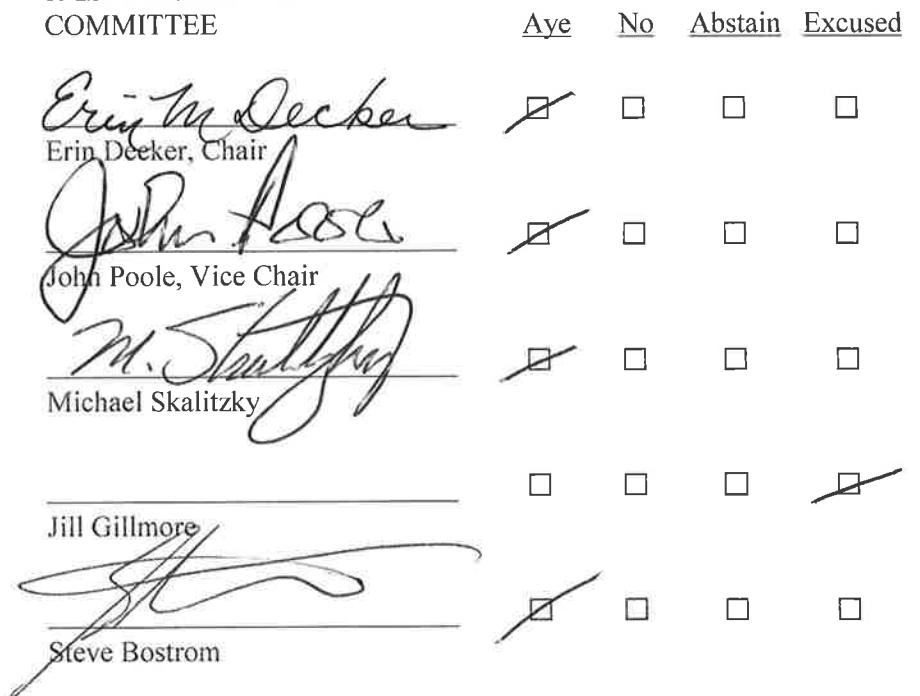 COMMITTEE Aye No Abstain Excused
Erin M Decker
Erin Decker, Chair
John Poole
John Poole, Vice Chair
M. Skalitzky
Michael Skalitzky
Jill Gillmore
Steve Bostrom